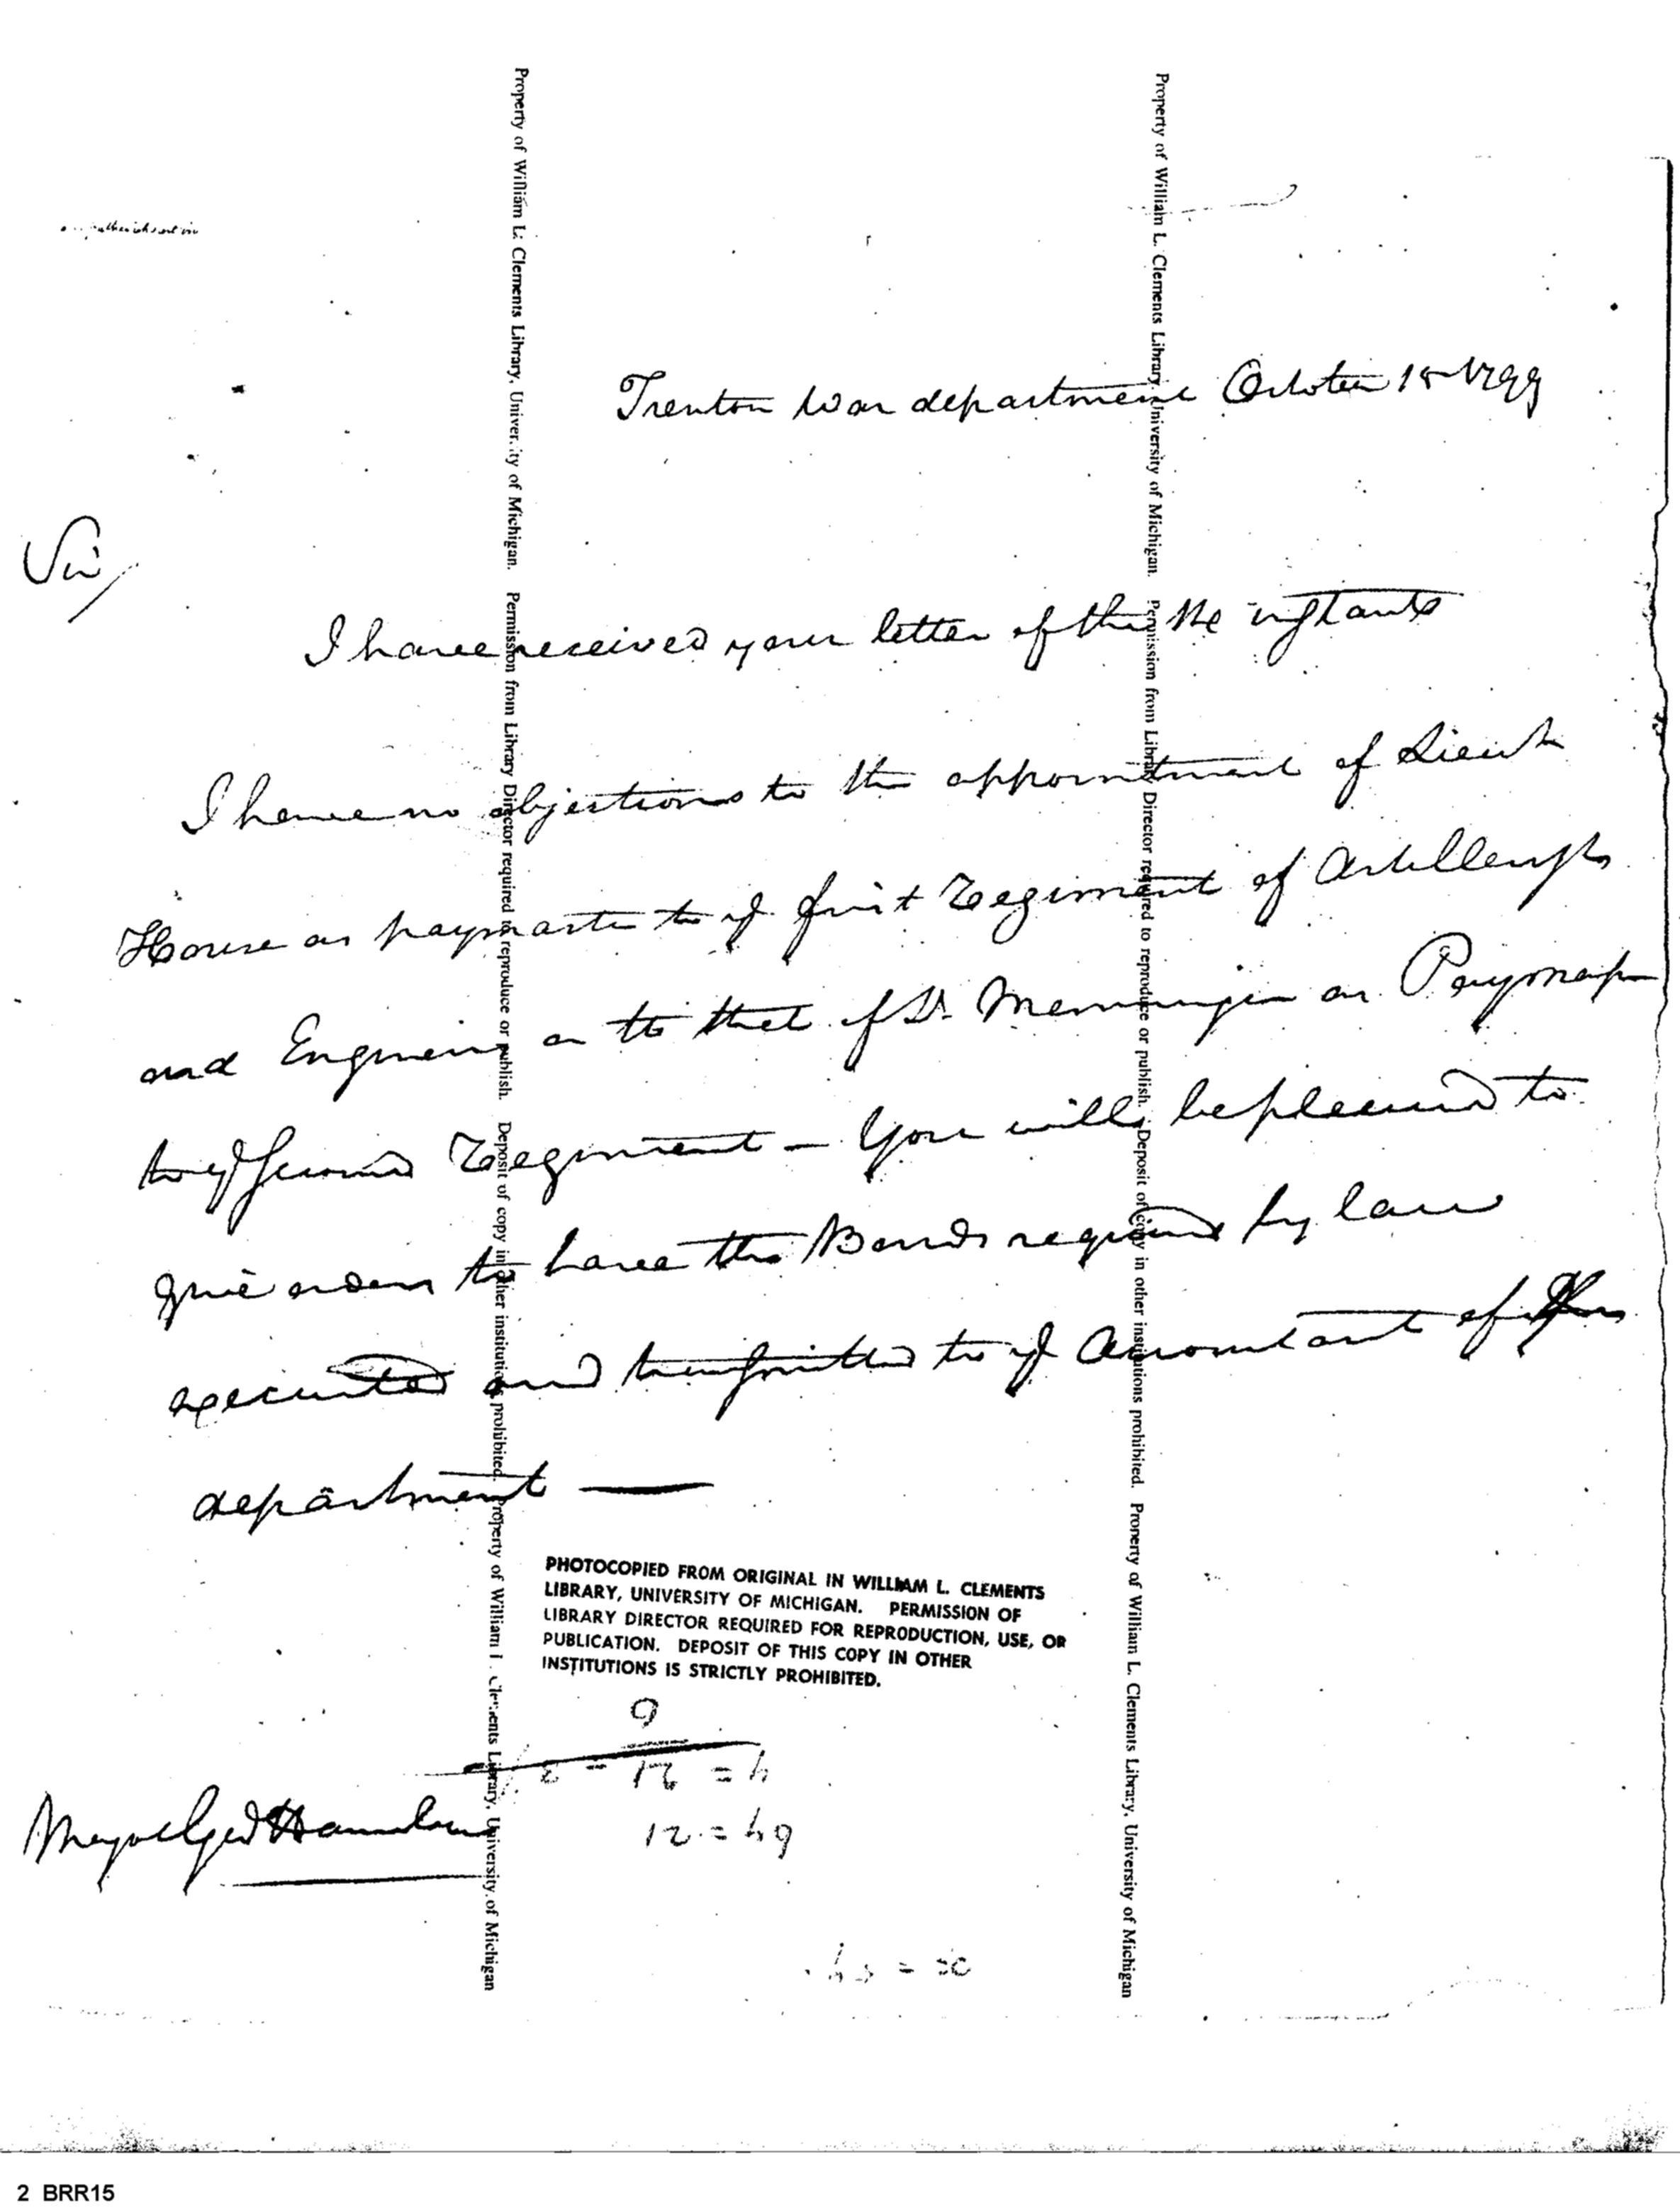 Trenton War department October 15 1799
Sir/
I have received your letter of the instants
I have no objections to the appointment of Lieut
House as paymaster to ye first Regiment of Artillerysts
and Engineers or to that of Dr. Memminger as Paymaster
to ye second Regiment — You will be pleased to
give orders to have the Bonds required by law
executed and transmitted to ye Accountant of
department —
PHOTOCOPIED FROM ORIGINAL IN WILLIAM L. CLEMENTS
LIBRARY, UNIVERSITY OF MICHIGAN. PERMISSION OF
LIBRARY DIRECTOR REQUIRED FOR REPRODUCTION, USE, OR
PUBLICATION. DEPOSIT OF THIS COPY IN OTHER
INSTITUTIONS IS STRICTLY PROHIBITED.
Major Genl Hamilton
Property of William L. Clements Library, University of Michigan. Permission from Library Director required to reproduce or publish. Deposit of copy in other institutions prohibited. Property of William L. Clements Library, University of Michigan
Property of William L. Clements Library, University of Michigan. Permission from Library Director required to reproduce or publish. Deposit of copy in other institutions prohibited. Property of William L. Clements Library, University of Michigan
2 BRR15